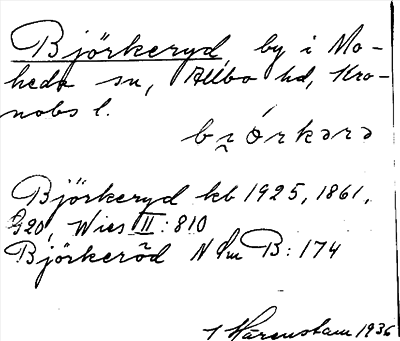 Björkeryd, by i Mo-
heda sn, Allbo hd, Kro-
nobs l.
Björkeryd kb 1925, 1861,
G20, Wies II: 810
Björkeröd N Sm B: 174
Härenstam 1936